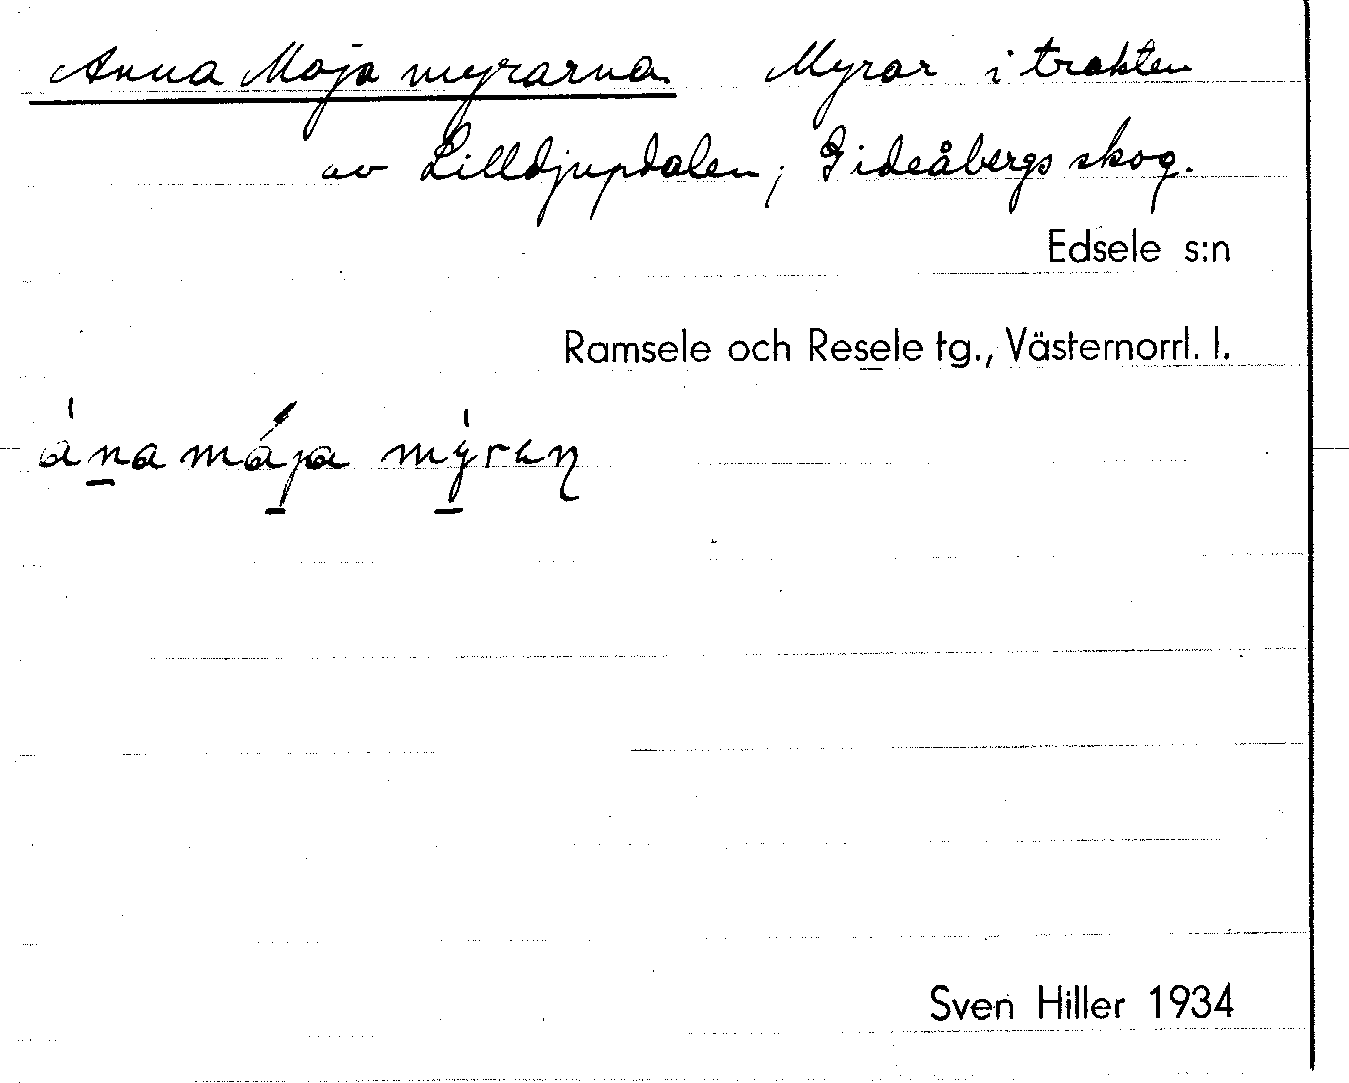 Anna Maja myrarna. Myrar i trakten
av Lilldjupdalen, Gideåbergs skog.
Edsele s:n
Ramsele och Resele tg., Västernorrl. l.
ána mája mýraŋ
Sven Hiller 1934